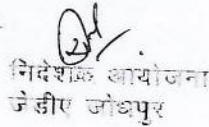 निदेशक आयोजना
जेडीए जोधपुर